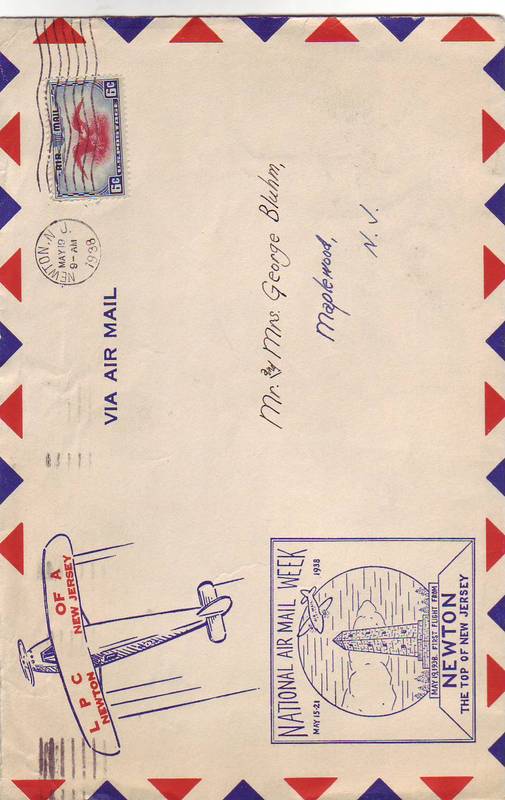 L P C OF A
NEWTON NEW JERSEY
VIA AIR MAIL
NEWTON, N.J.
MAY 19
9-AM
1938
6¢ 6¢
AIR MAIL
U.S. POSTAGE
Mr. & Mrs. George Bluhm,
Maplewood,
N. J.
NATIONAL AIR MAIL WEEK
MAY 15-21 1938
MAY 19, 1938. FIRST FLIGHT FROM
NEWTON
THE TOP OF NEW JERSEY